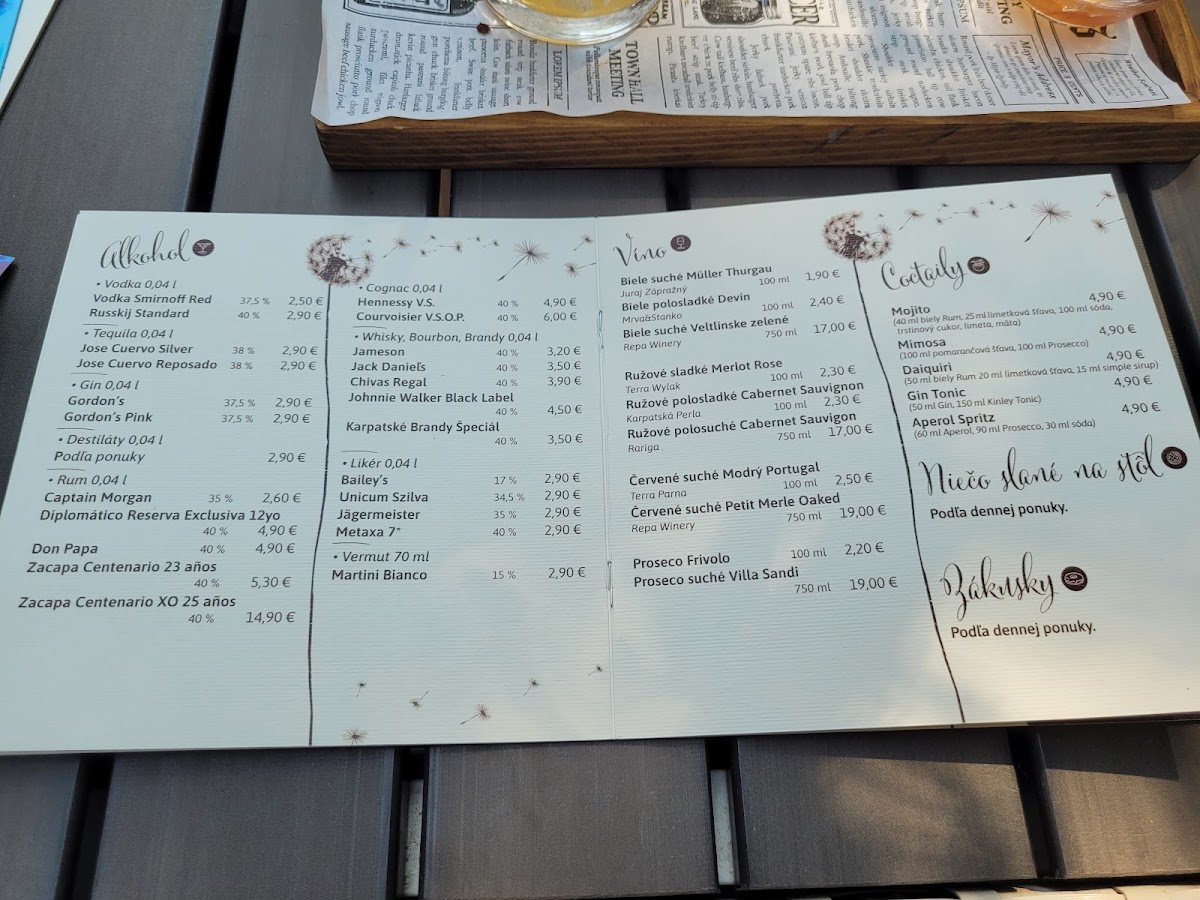 TOWN HALL
MEETING
LOREM IPSUM
Mayor's Address
Alkohol
• Vodka 0,04 l
Vodka Smirnoff Red 37,5 % 2,50 €
Russkij Standard 40 % 2,90 €
• Tequila 0,04 l
Jose Cuervo Silver 38 % 2,90 €
Jose Cuervo Reposado 38 % 2,90 €
• Gin 0,04 l
Gordon's 37,5 % 2,90 €
Gordon's Pink 37,5 % 2,90 €
• Destiláty 0,04 l
Podľa ponuky 2,90 €
• Rum 0,04 l
Captain Morgan 35 % 2,60 €
Diplomático Reserva Exclusiva 12yo
40 % 4,90 €
Don Papa 40 % 4,90 €
Zacapa Centenario 23 años
40 % 5,30 €
Zacapa Centenario XO 25 años
40 % 14,90 €
• Cognac 0,04 l
Hennessy V.S. 40 % 4,90 €
Courvoisier V.S.O.P. 40 % 6,00 €
• Whisky, Bourbon, Brandy 0,04 l
Jameson 40 % 3,20 €
Jack Danieľs 40 % 3,50 €
Chivas Regal 40 % 3,90 €
Johnnie Walker Black Label
40 % 4,50 €
Karpatské Brandy Špeciál
40 % 3,50 €
• Likér 0,04 l
Bailey's 17 % 2,90 €
Unicum Szilva 34,5 % 2,90 €
Jägermeister 35 % 2,90 €
Metaxa 7* 40 % 2,90 €
• Vermut 70 ml
Martini Bianco 15 % 2,90 €
Víno
Biele suché Müller Thurgau
Juraj Zápražný 100 ml 1,90 €
Biele polosladké Devín
Mrva&Stanko 100 ml 2,40 €
Biele suché Veltlínske zelené
Repa Winery 750 ml 17,00 €
Ružové sladké Merlot Rose
Terra Wylak 100 ml 2,30 €
Ružové polosladké Cabernet Sauvignon
Karpatská Perla 100 ml 2,30 €
Ružové polosuché Cabernet Sauvigon
Rariga 750 ml 17,00 €
Červené suché Modrý Portugal
Terra Parna 100 ml 2,50 €
Červené suché Petit Merle Oaked
Repa Winery 750 ml 19,00 €
Proseco Frivolo 100 ml 2,20 €
Proseco suché Villa Sandi
750 ml 19,00 €
Coctaily
Mojito 4,90 €
(40 ml biely Rum, 25 ml limetková šťava, 100 ml sóda,
trstinový cukor, limeta, máta)
Mimosa 4,90 €
(100 ml pomarančová šťava, 100 ml Prosecco)
Daiquiri 4,90 €
(50 ml biely Rum 20 ml limetková šťava, 15 ml simple sirup)
Gin Tonic 4,90 €
(50 ml Gin, 150 ml Kinley Tonic)
Aperol Spritz 4,90 €
(60 ml Aperol, 90 ml Prosecco, 30 ml sóda)
Niečo slané na stôl
Podľa dennej ponuky.
Zákusky
Podľa dennej ponuky.